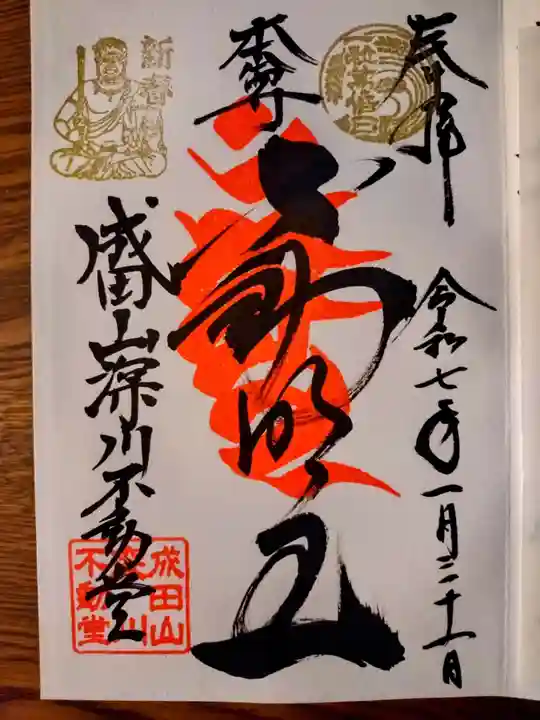 奉拝
令和七年一月二十一日
本尊
不動明王
新春
成田山深川不動堂
成田山
深川
不動堂